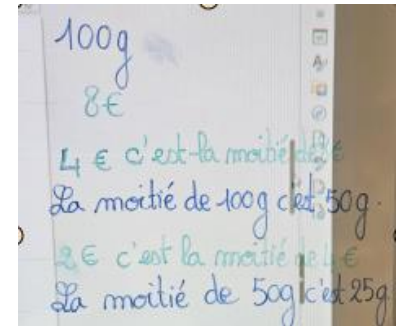 100g
8€
4 € c'est la moitié de 8€
La moitié de 100g c'est 50g.
2€ c'est la moitié de 4€
La moitié de 50g c'est 25g